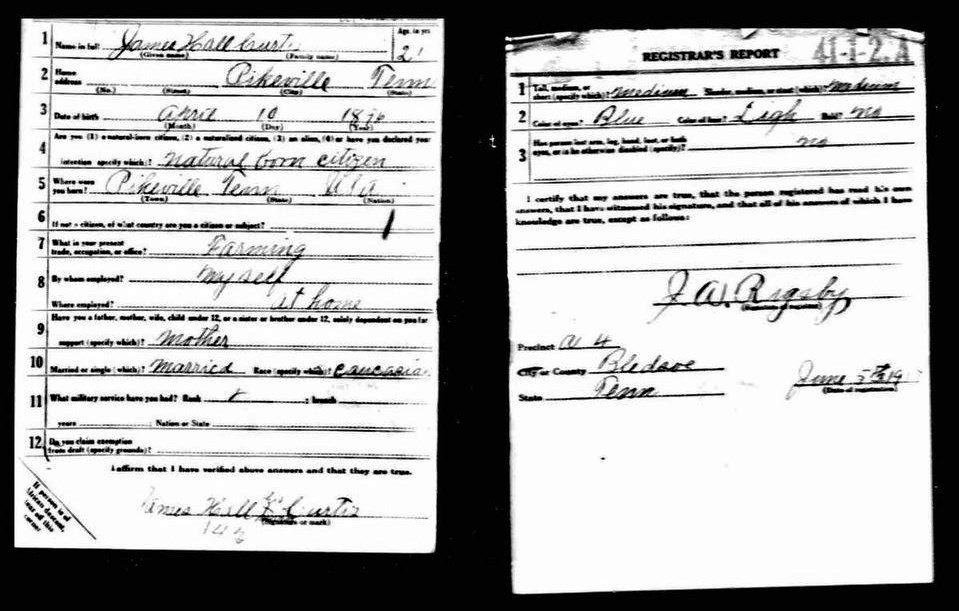 1 Name in full James Hall Curtis Age, in yrs
(Given name) (Family name) 21
2 Home address Pikeville Tenn
(No.) (Street) (City) (State)
3 Date of birth April 10 1896
(Month) (Day) (Year)
Are you (1) a natural-born citizen, (2) a naturalized citizen, (3) an alien, (4) or have you declared your
4 intention (specify which)? Natural born citizen
5 Where were you born? Pikeville Tenn USA
(Town) (State) (Nation)
6 If not a citizen, of what country are you a citizen or subject?
7 What is your present trade, occupation, or office? Farming
8 By whom employed? Myself
Where employed? at home
Have you a father, mother, wife, child under 12, or a sister or brother under 12, solely dependent on you for
9 support (specify which)? Mother
10 Married or single (which)? Married Race (specify which)? Caucasian
11 What military service have you had? Rank ; branch
years ; Nation or State
12 Do you claim exemption from draft (specify grounds)?
I affirm that I have verified above answers and that they are true.
James Hall Curtis
(Signature or mark)
If person is of
African descent,
tear off this
corner
REGISTRAR'S REPORT 41-1-2. A
1 Tall, medium, or short (specify which)? Medium Slender, medium, or stout (which)? Medium
2 Color of eyes? Blue Color of hair? Ligh Bald? No
3 Has person lost arm, leg, hand, foot, or both eyes, or is he otherwise disabled (specify)? no
I certify that my answers are true, that the person registered has read his own
answers, that I have witnessed his signature, and that all of his answers of which I have
knowledge are true, except as follows:
J. W. Rigsby
(Signature of registrar)
Precinct 4
City or County Bledsoe
State Tenn
June 5th 19
(Date of registration)